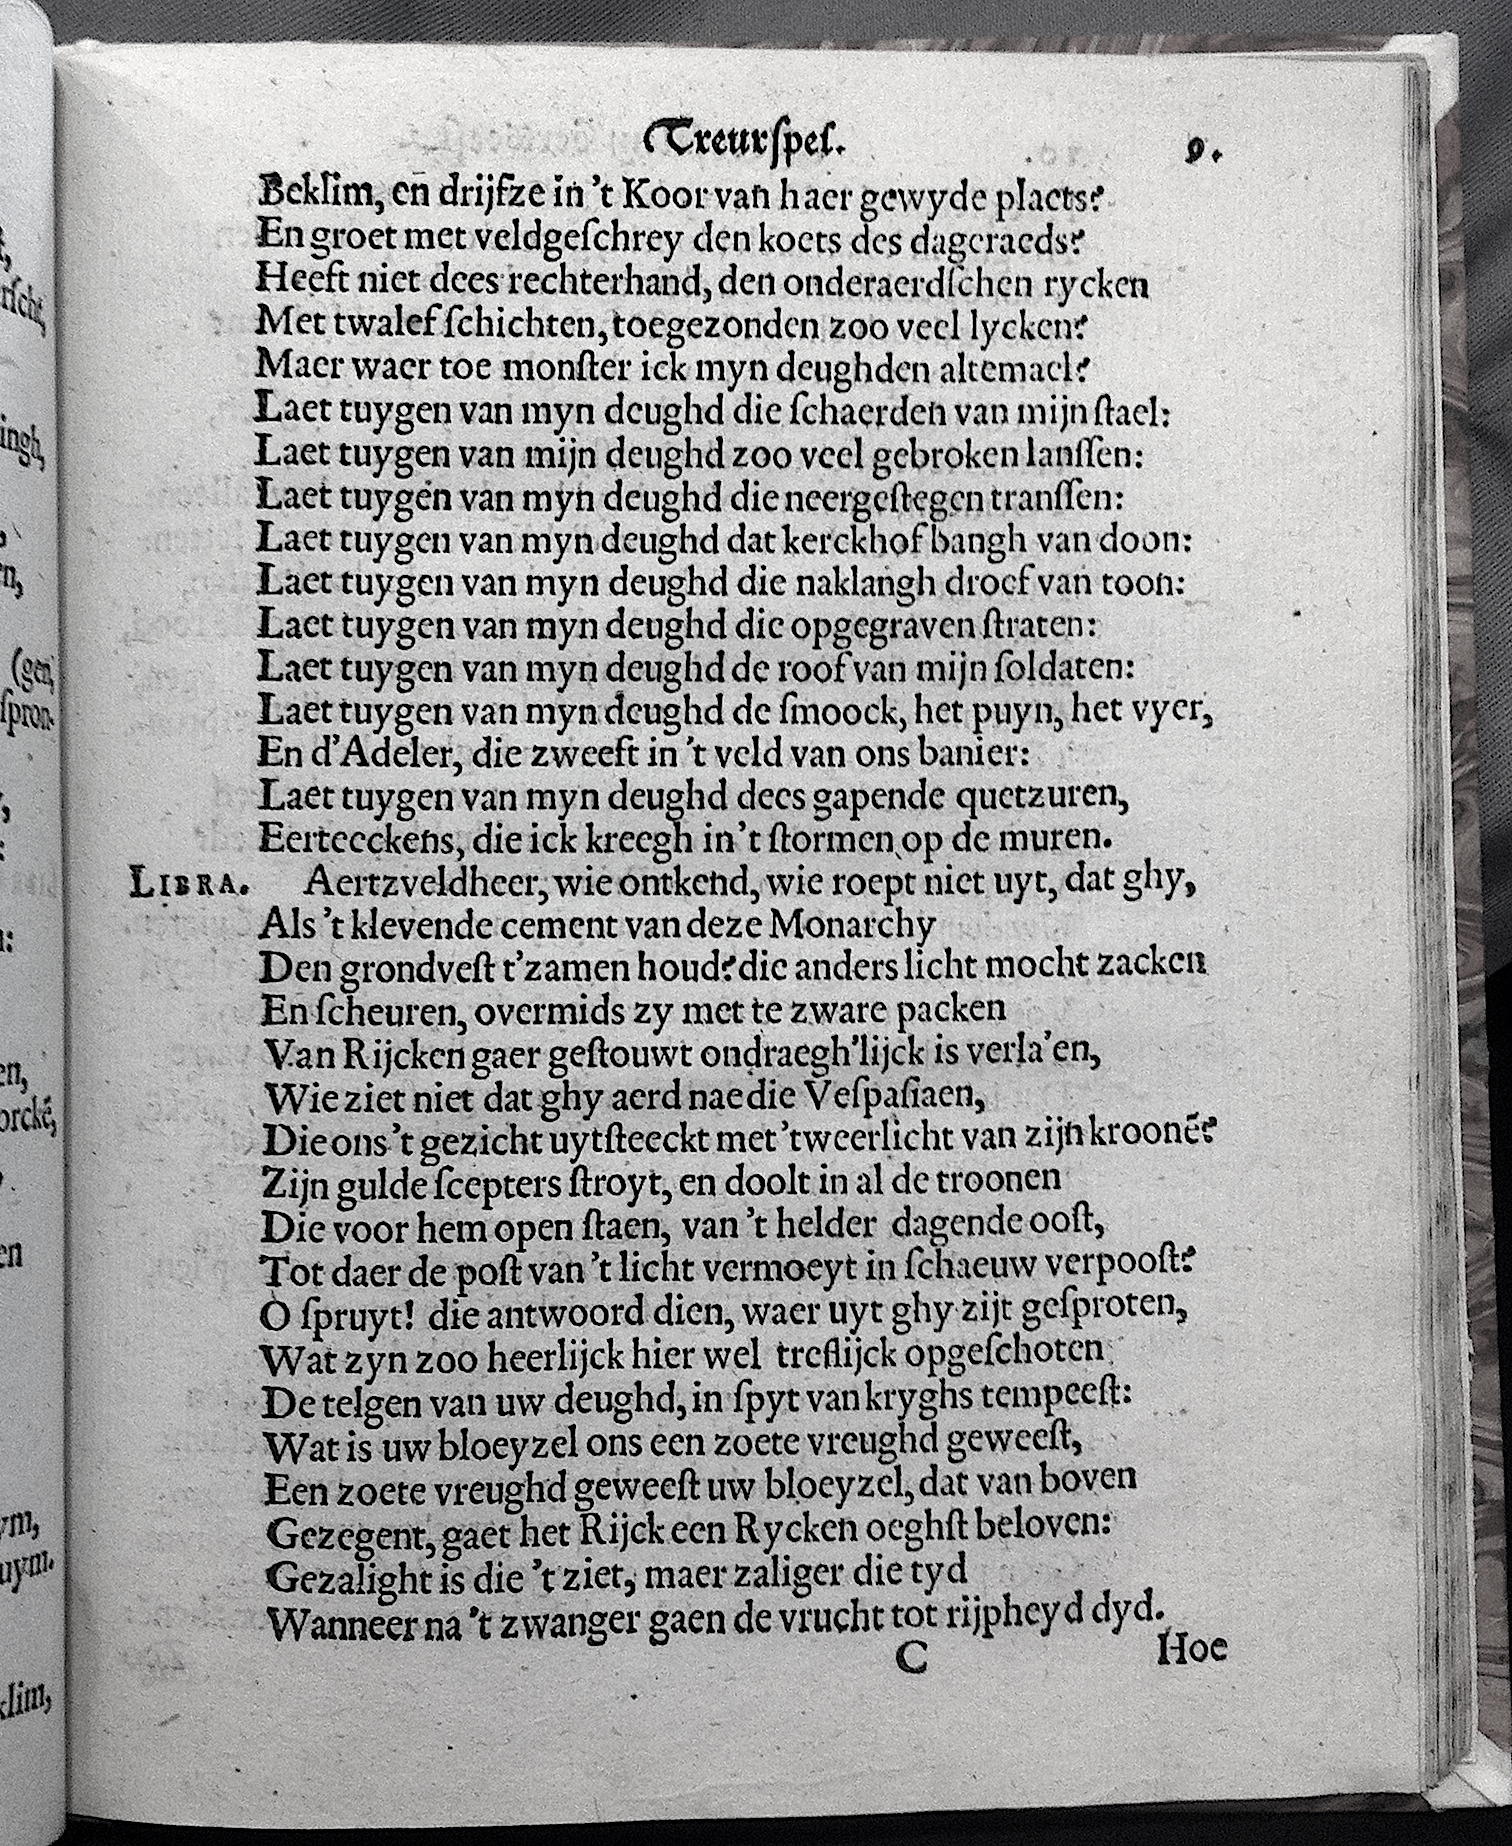 Treurſpel. 9.
Beklim, en̄ drijfze in 't Koor van haer gewyde plaets?
En groet met veldgeſchrey den koets des dageraeds?
Heeft niet dees rechterhand, den onderaerdſchen rycken
Met twalef ſchichten, toegezonden zoo veel lycken?
Maer waer toe monſter ick myn deughden altemael?
Laet tuygen van myn deughd die ſchaerden van mijn ſtael:
Laet tuygen van mijn deughd zoo veel gebroken lanſſen:
Laet tuygen van myn deughd die neergeſtegen tranſſen:
Laet tuygen van myn deughd dat kerckhof bangh van doon:
Laet tuygen van myn deughd die naklangh droef van toon:
Laet tuygen van myn deughd die opgegraven ſtraten:
Laet tuygen van myn deughd de roof van mijn ſoldaten:
Laet tuygen van myn deughd de ſmoock, het puyn, het vyer,
En d'Adeler, die zweeft in 't veld van ons banier:
Laet tuygen van myn deughd dees gapende quetzuren,
Eerteeckens, die ick kreegh in 't ſtormen op de muren.
LIBRA. Aertzveldheer, wie ontkend, wie roept niet uyt, dat ghy,
Als 't klevende cement van deze Monarchy
Den grondveſt t'zamen houd? die anders licht mocht zacken
En ſcheuren, overmids zy met te zware packen
Van Rijcken gaer geſtouwt ondraegh'lijck is verla'en,
Wie ziet niet dat ghy aerd nae die Veſpaſiaen,
Die ons 't gezicht uytſteeckt met 'tweerlicht van zijn kroonē?
Zijn gulde ſcepters ſtroyt, en doolt in al de troonen
Die voor hem open ſtaen, van 't helder dagende ooſt,
Tot daer de poſt van 't licht vermoeyt in ſchaeuw verpooſt?
O ſpruyt! die antwoord dien, waer uyt ghy zijt geſproten,
Wat zyn zoo heerlijck hier wel treflijck opgeſchoten
De telgen van uw deughd, in ſpyt van kryghs tempeeſt:
Wat is uw bloeyzel ons een zoete vreughd geweeſt,
Een zoete vreughd geweeſt uw bloeyzel, dat van boven
Gezegent, gaet het Rijck een Rycken oeghſt beloven:
Gezalight is die 't ziet, maer zaliger die tyd
Wanneer na 't zwanger gaen de vrucht tot rijpheyd dyd.
C Hoe